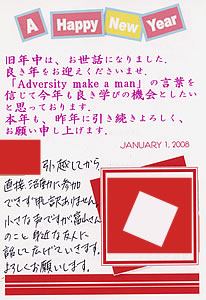 A Happy New Year
旧年中は、お世話になりました。
良き年をお迎えくださいませ。
「Adversity make a man」の言葉を
信じて今年も良き学びの機会としたい
と思っております。
本年も、昨年に引き続きよろしく、
お願い申し上げます。
JANUARY 1, 2008
引越してから
直接活動に参加
できず申し訳ありません
小さな声ですが、富山さん
のこと身近な友人に
話して広げていきます。
よろしくお願いします。